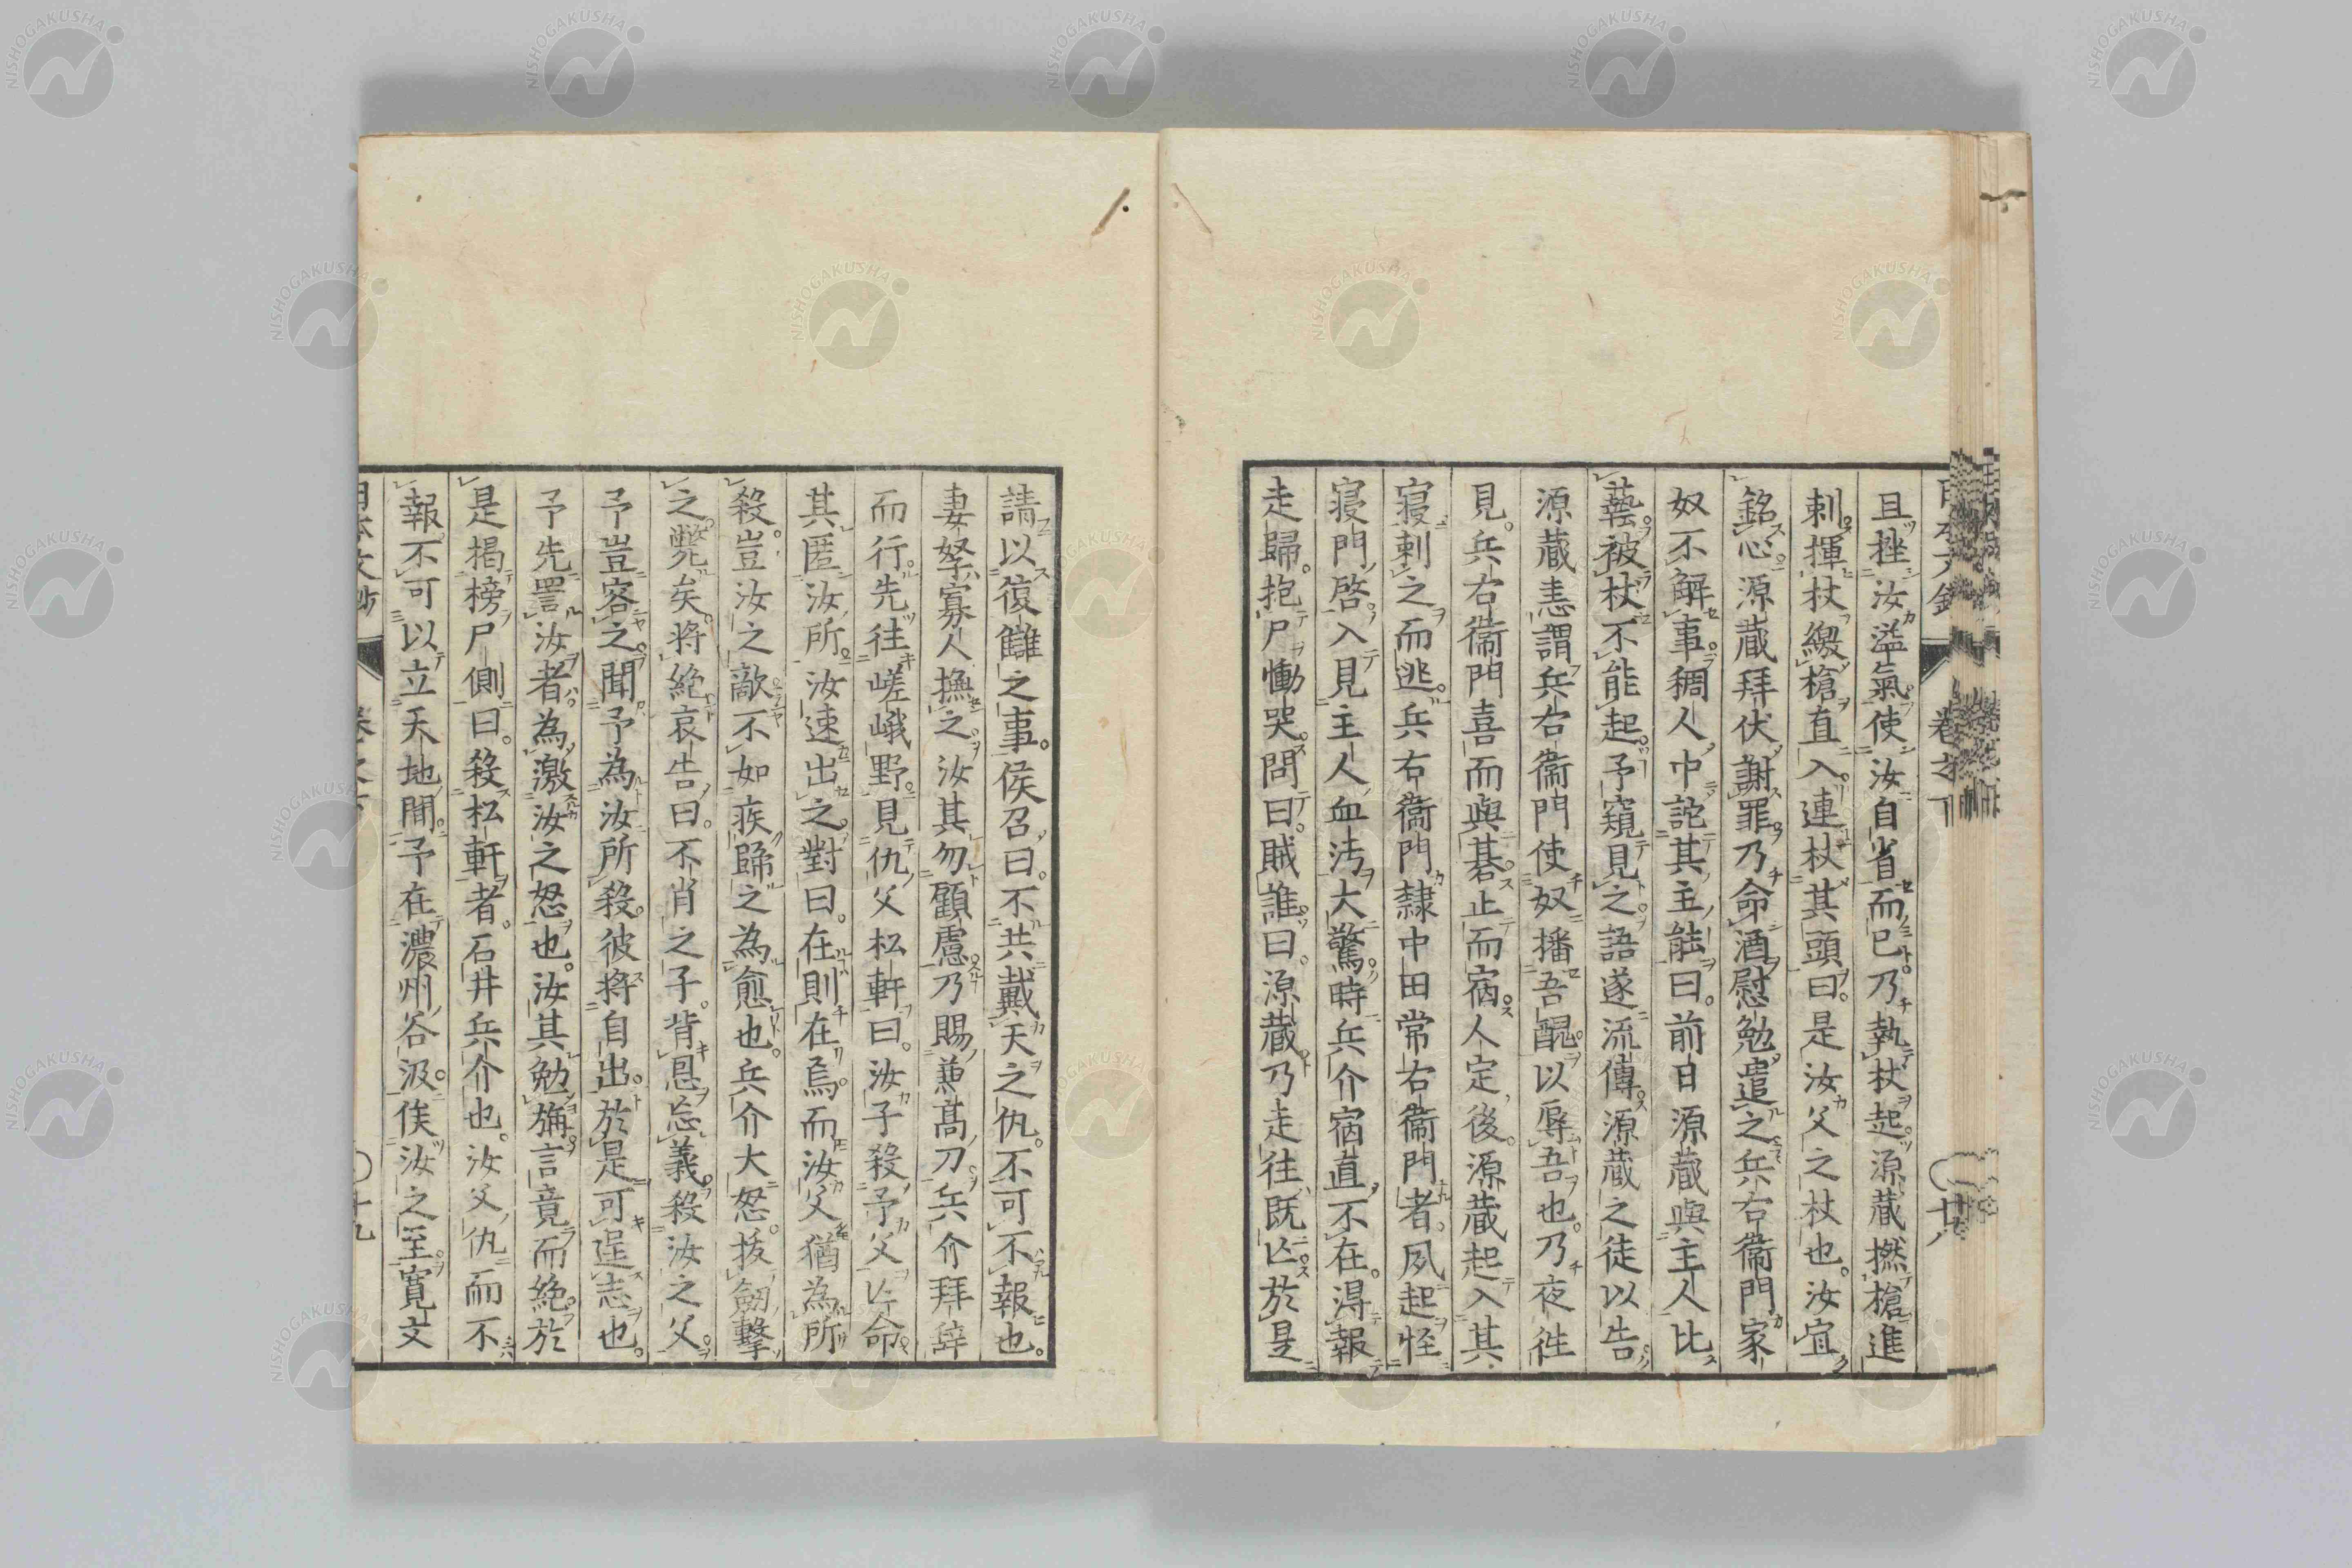 且挫汝溢氣使汝自省而已乃執杖起源蔵撚槍進
刺揮杖繳槍直入連杖其頭曰是汝父之杖也汝宜
銘心源蔵拜伏謝罪乃命酒慰勉遣之兵右衞門家
奴不解事稠人中詑其主能曰前日源蔵與主人比
藝被杖不能起予窺見之語遂流傳源蔵之徒以告
源蔵恚謂兵右衞門使奴播吾醜以辱吾也乃夜徃
見兵右衞門喜而與棊止而宿人定後源蔵起入其
寝刺之而逃兵右衞門隸中田常右衞門者夙起怪
寝門啓入見主人血法大驚時兵介宿直不在得報
走歸抱尸慟哭問曰賊誰曰源蔵乃走往既亾於是
請以復讎之事侯召曰不共戴天之仇不可不報也
妻孥寡人撫之汝其勿顧慮乃賜兼髙刀兵介拜辤
而行先往嵯峨野見仇父松軒曰汝子殺予父亾命
其匿汝所汝速出之對曰在則在焉而汝父猶為所
殺豈汝之敵不如疾歸之為愈也兵介大怒拔劒擊
之斃矣將絶哀告曰不肖之子背恩忘義殺汝之父
予豈容之聞予為汝所殺彼將自出於是可逞志也
予先詈汝者為激汝之怒也汝其勉旃言竟而絶於
是揭榜尸側曰殺松軒者石井兵介也汝父仇而不
報不可以立天地間予在濃州谷汲俟汝之至寛文